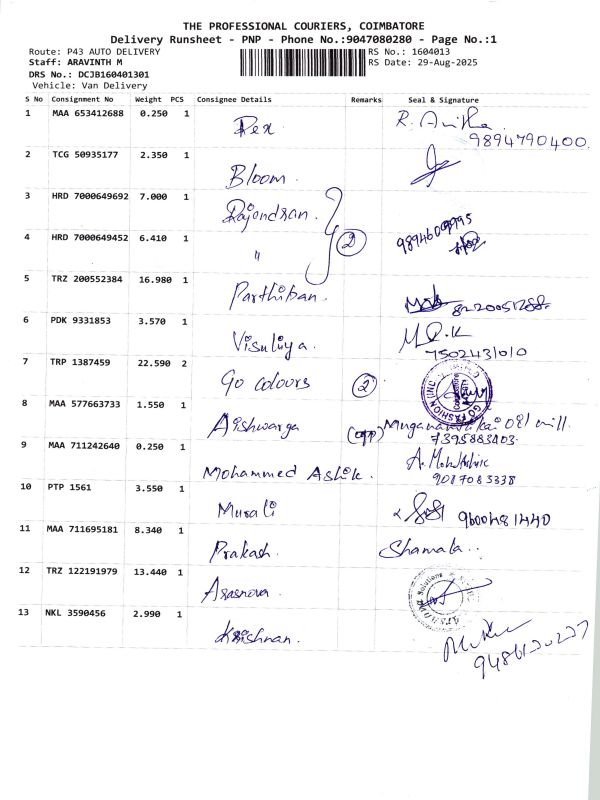 THE PROFESSIONAL COURIERS, COIMBATORE
Delivery Runsheet - PNP - Phone No.:9047080280 - Page No.:1
Route: P43 AUTO DELIVERY RS No.: 1604013
Staff: ARAVINTH M RS Date: 29-Aug-2025
DRS No.: DCJB160401301
Vehicle: Van Delivery
S No Consignment No Weight PCS Consignee Details Remarks Seal & Signature
1 MAA 653412688 0.250 1 Rex R. Anitha
9894790400
2 TCG 50935177 2.350 1 Bloom
3 HRD 7000649692 7.000 1 Rajendran
4 HRD 7000649452 6.410 1 " 2
5 TRZ 200552384 16.980 1 Parthiban
6 PDK 9331853 3.570 1 Visuliya
7502431010
7 TRP 1387459 22.590 2 Go colours 2
8 MAA 577663733 1.550 1 Aishwarya (opp) oil mill
7395883403
9 MAA 711242640 0.250 1 Mohammed Ashik
9087083338
10 PTP 1561 3.550 1 Murali 9600481440
11 MAA 711695181 8.340 1 Prakash Shamala
12 TRZ 122191979 13.440 1
13 NKL 3590456 2.990 1 Krishnan